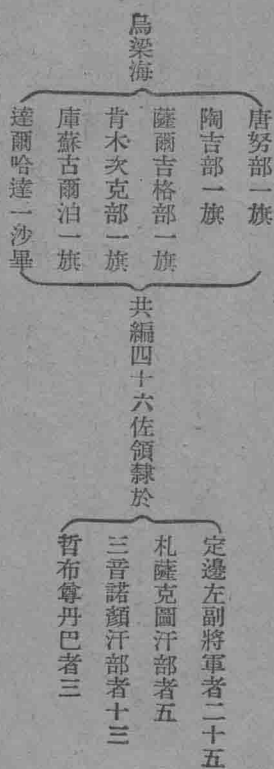 烏梁海
唐努部一旗
陶吉部一旗
薩爾吉格部一旗
肯木次克部一旗
庫蘇古爾泊一旗
達爾哈達一沙畢
共編四十六佐領隸於
定邊左副將軍者二十五
札薩克圖汗部者五
三音諾顏汗部者十三
哲布尊丹巴者三